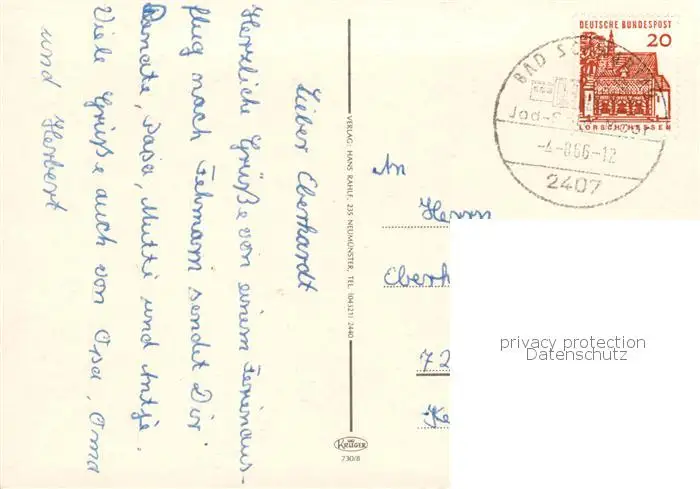 Lieber Eberhardt
Herzliche Grüße von einem Ferienaus-
flug nach Fehmarn sendet Dir
Renate, Papa, Mutti und Antje.
Viele Grüße auch von Opa, Oma
und Herbert
VERLAG: HANS RAHLF, 235 NEUMÜNSTER, TEL. (04321) 2440
KRÜGER
730/8
DEUTSCHE BUNDESPOST
20
LORSCH/HESSEN
BAD
Jod-
-4.-866-12
2407
An
Herrn
Eberh
72
Ke
privacy protection
Datenschutz